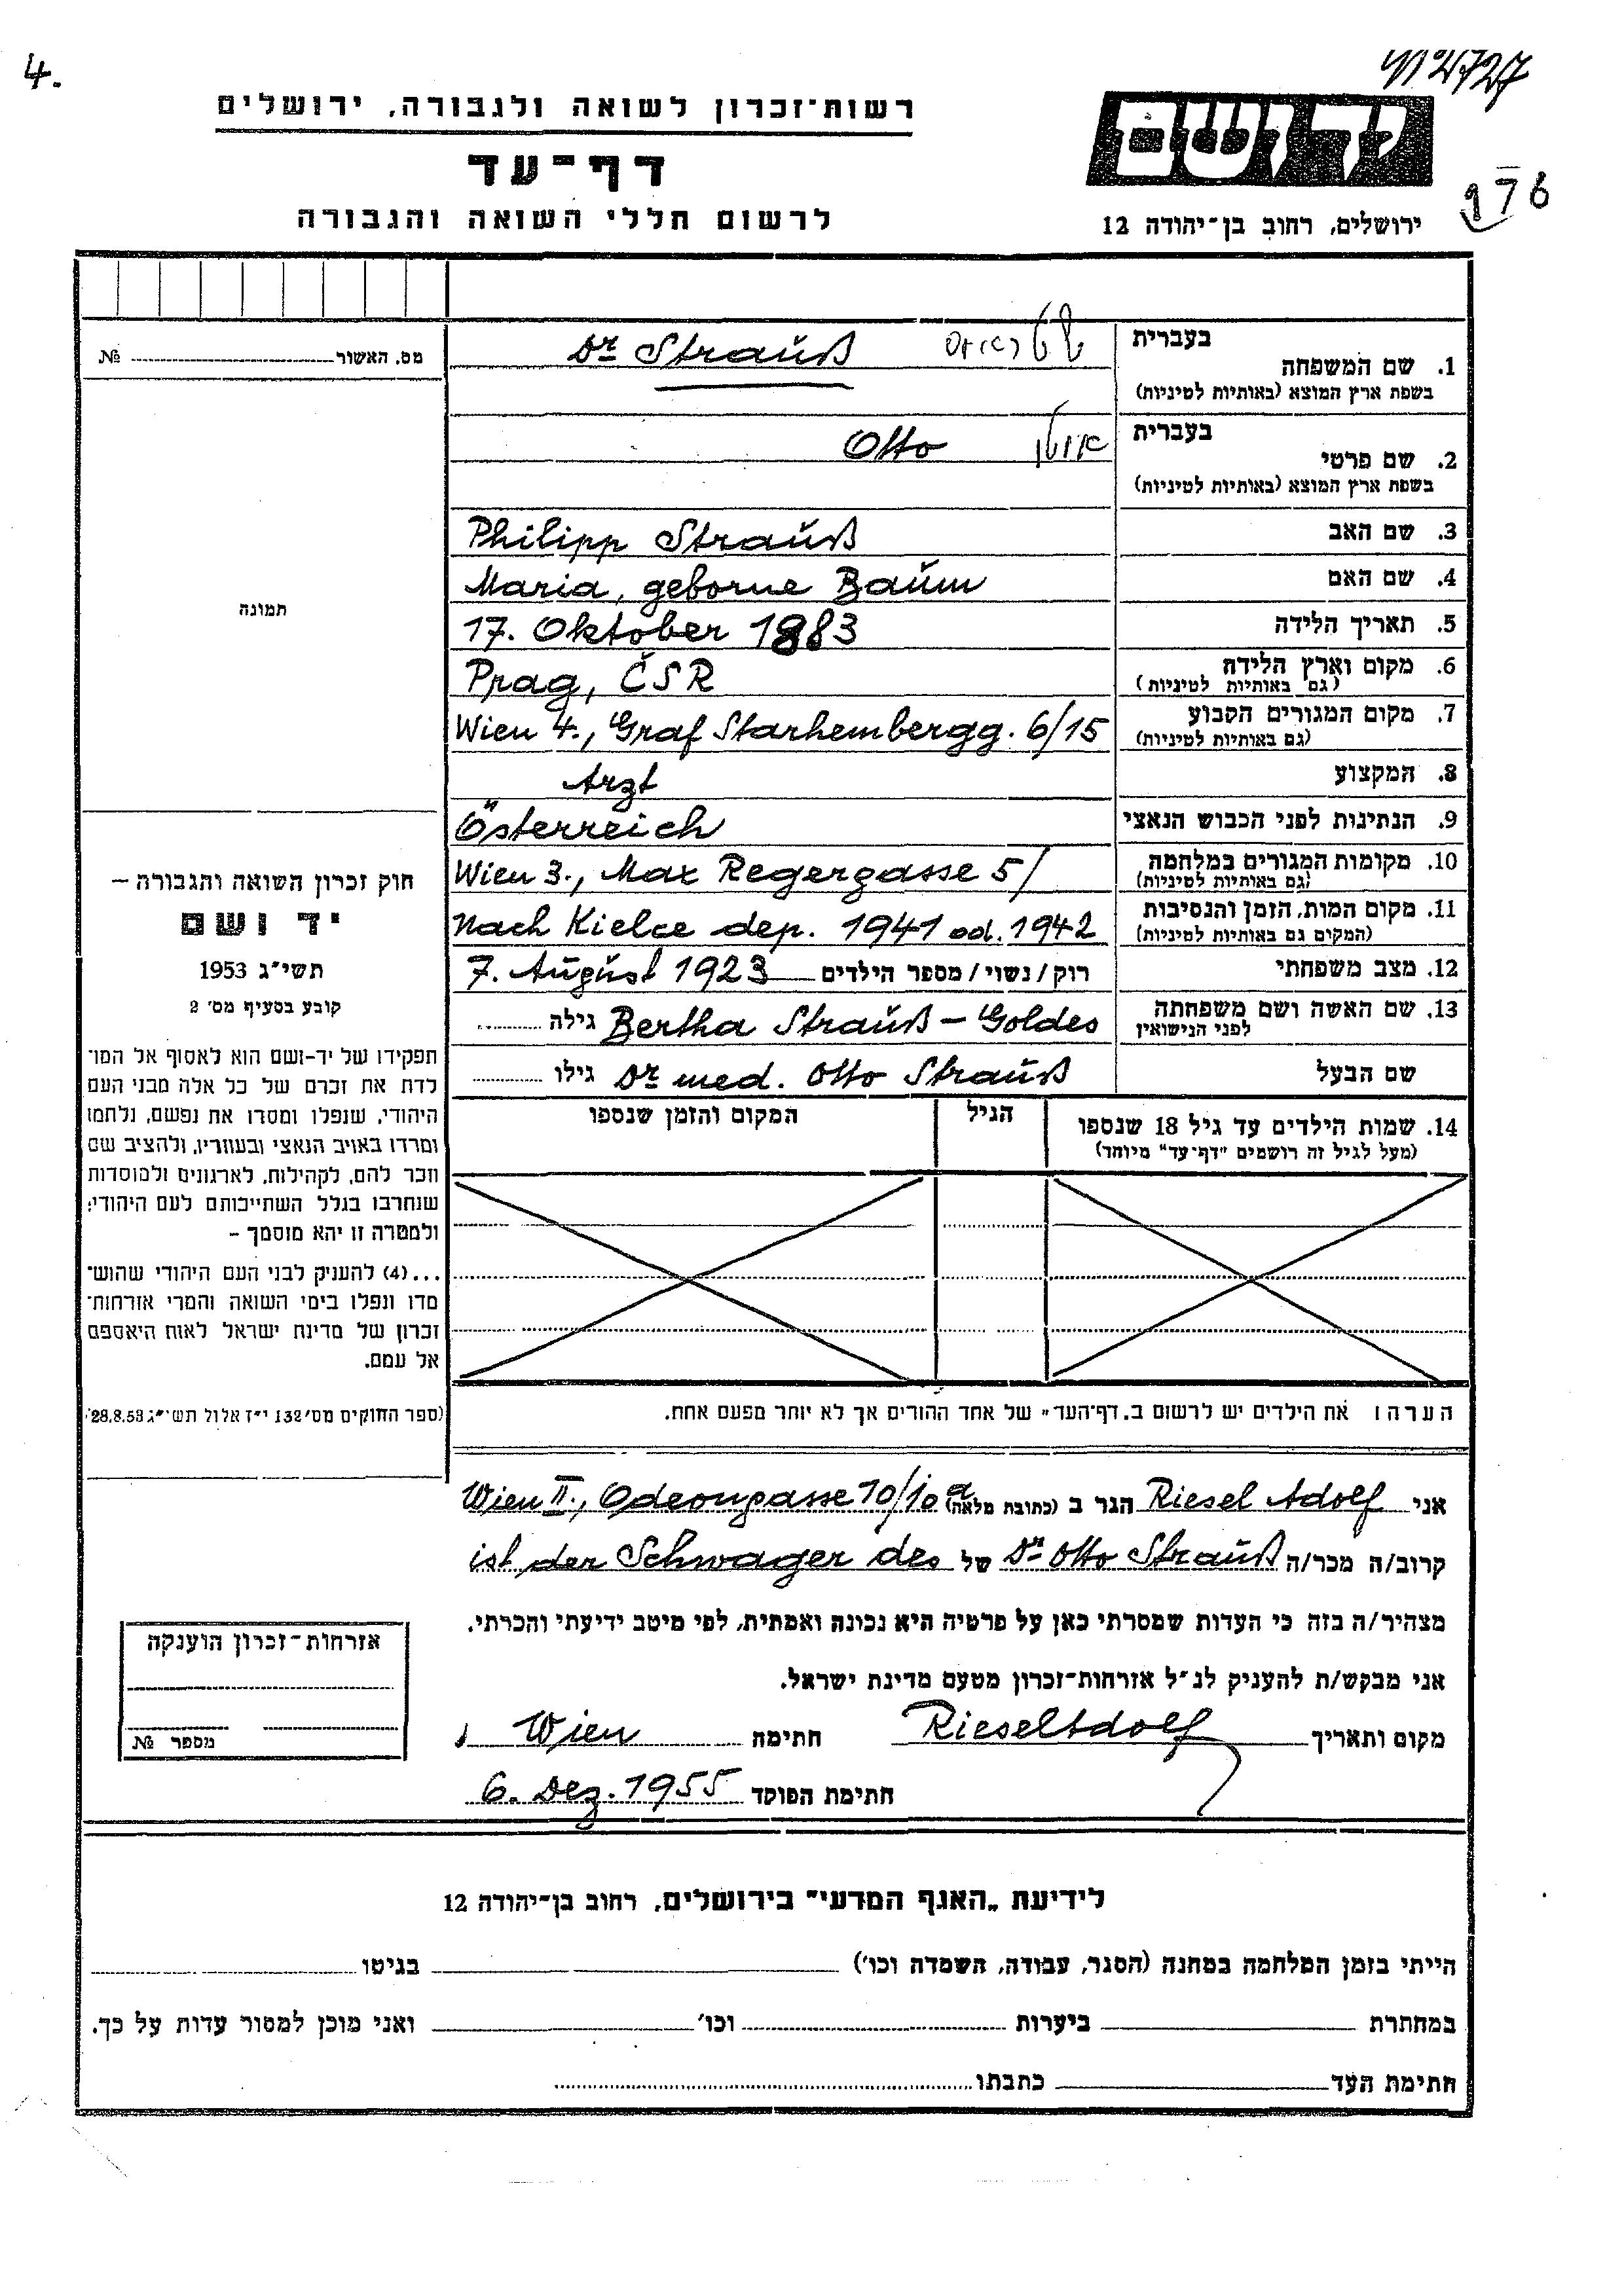 4.
רשות־זכרון לשואה ולגבורה, ירושלים
דף־עד
לרשום חללי השואה והגבורה
יד ושם
ירושלים, רחוב בן־יהודה 12
976
מס. האשור № 
בעברית
1. שם המשפחה Dr Strauß שטראוס
בשפת ארץ המוצא (באותיות לטיניות)
בעברית
2. שם פרטי Otto אוטו
בשפת ארץ המוצא (באותיות לטיניות)
3. שם האב Philipp Strauß
4. שם האם Maria, geborne Baum
5. תאריך הלידה 17. Oktober 1883
6. מקום וארץ הלידה Prag, ČSR
(גם באותיות לטיניות)
7. מקום המגורים הקבוע Wien 4., Graf Starhembergg. 6/15
(גם באותיות לטיניות)
8. המקצוע Arzt
9. הנתינות לפני הכבוש הנאצי Österreich
10. מקומות המגורים במלחמה Wien 3., Max Regergasse 5/
(גם באותיות לטיניות)
11. מקום המות, הזמן והנסיבות nach Kielce dep. 1941 od. 1942
(המקום גם באותיות לטיניות)
12. מצב משפחתי רוק/נשוי/מספר הילדים 7. August 1923
13. שם האשה ושם משפחתה Bertha Strauß – Goldes גילה
לפני הנישואין
שם הבעל Dr med. Otto Strauß גילו
14. שמות הילדים עד גיל 18 שנספו הגיל המקום והזמן שנספו
(מעל לגיל זה רושמים "דף־עד" מיוחד)
תמונה
חוק זכרון השואה והגבורה –
יד ושם
תשי״ג 1953
קובע בסעיף מס׳ 2
תפקידו של יד-ושם הוא לאסוף אל המו־
לדת את זכרם של כל אלה מבני העם
היהודי, שנפלו ומסרו את נפשם, נלחמו
ומרדו באויב הנאצי ובעוזריו, ולהציב שם
וזכר להם, לקהילות, לארגונים ולמוסדות
שנחרבו בגלל השתייכותם לעם היהודי;
ולמטרה זו יהא מוסמך –
...(4) להעניק לבני העם היהודי שהוש־
מדו ונפלו בימי השואה והמרי אזרחות־
זכרון של מדינת ישראל לאות היאספם
אל עמם.
(ספר החוקים מס׳ 132 י״ז אלול תשי״ג 28.8.53)
הערה: את הילדים יש לרשום ב„דף־העד" של אחד ההורים אך לא יותר מפעם אחת.
אני Riesel Adolf הגר ב (כתובת מלאה) Wien II., Odeongasse 10/10a
קרוב/ה מכר/ה Dr Otto Strauß של ist der Schwager des
מצהיר/ה בזה כי העדות שמסרתי כאן על פרטיה היא נכונה ואמתית, לפי מיטב ידיעתי והכרתי.
אני מבקש/ת להעניק לנ״ל אזרחות־זכרון מטעם מדינת ישראל.
מקום ותאריך Riesel Adolf חתימה Wien
חתימת הפוקד 6. Dez. 1955
אזרחות־זכרון הוענקה
מספר №
לידיעת „האגף המדעי" בירושלים, רחוב בן־יהודה 12
הייתי בזמן המלחמה במחנה (הסגר, עבודה, השמדה וכו׳) בגיטו
במחתרת ביערות וכו׳ ואני מוכן למסור עדות על כך.
חתימת העד כתבתו